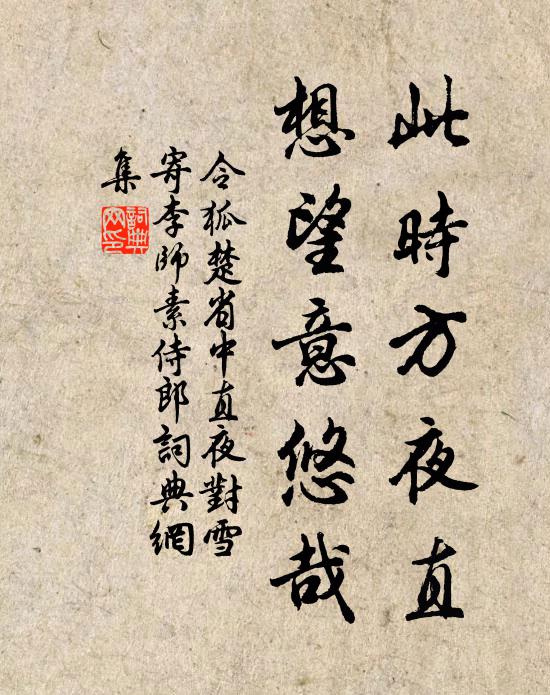 此時方夜直
想望意悠哉
令狐楚省中直夜對雪
寄李師素侍郎詞典網
集
詞典
网印